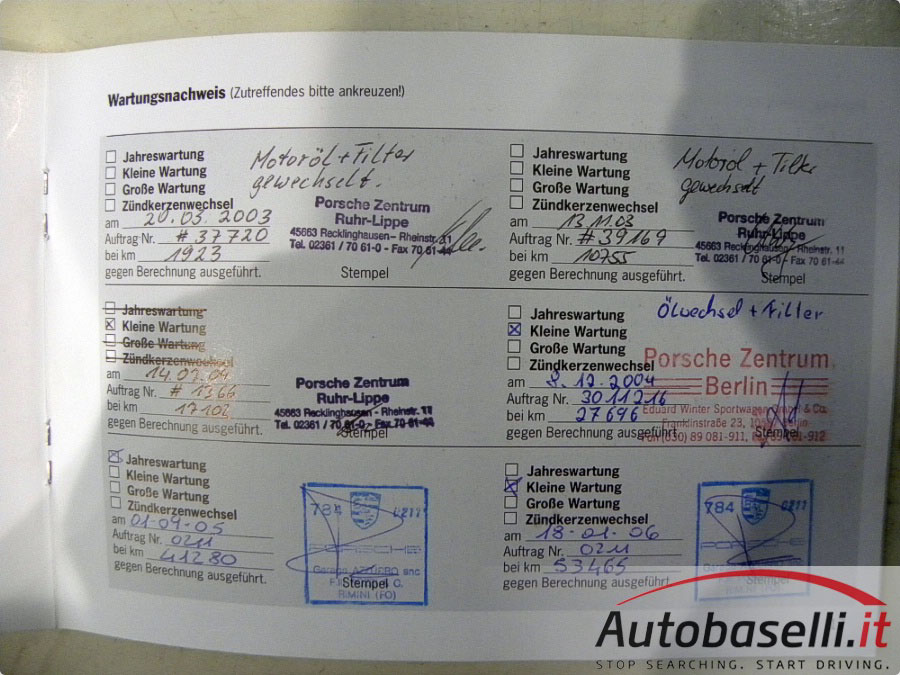 Wartungsnachweis (Zutreffendes bitte ankreuzen!)
Jahreswartung
Kleine Wartung
Große Wartung
Zündkerzenwechsel
Motoröl + Filter
gewechselt.
am 20.03.2003
Auftrag Nr. #37720
bei km 1923
gegen Berechnung ausgeführt.
Porsche Zentrum
Ruhr-Lippe
45663 Recklinghausen - Rheinstr. 11
Tel. 02361 / 70 61-0 - Fax 70 61-44
Stempel
Jahreswartung
Kleine Wartung
Große Wartung
Zündkerzenwechsel
Motoröl + Filter
gewechselt
am 13.11.03
Auftrag Nr. #39169
bei km 10755
gegen Berechnung ausgeführt.
Porsche Zentrum
Ruhr-Lippe
45663 Recklinghausen - Rheinstr. 11
Tel. 02361 / 70 61-0 - Fax 70 61-44
Stempel
Jahreswartung
Kleine Wartung
Große Wartung
Zündkerzenwechsel
am 14.07.04
Auftrag Nr. # 1366
bei km 17102
gegen Berechnung ausgeführt.
Porsche Zentrum
Ruhr-Lippe
45663 Recklinghausen - Rheinstr. 11
Tel. 02361 / 70 61-0 - Fax 70 61-44
Stempel
Jahreswartung
Kleine Wartung
Große Wartung
Zündkerzenwechsel
Ölwechsel + Filter
am 8.12.2004
Auftrag Nr. 3011216
bei km 27696
gegen Berechnung ausgeführt
Porsche Zentrum
Berlin
Eduard Winter Sportwagen GmbH & Co.
Franklinstraße 23, Berlin
Fax (030) 89 081-911, 89 081-912
Stempel
Jahreswartung
Kleine Wartung
Große Wartung
Zündkerzenwechsel
am 01-09-05
Auftrag Nr. 0211
bei km 41280
gegen Berechnung ausgeführt.
784 0211
PORSCHE
Garage AZZURRO snc
Stempel C.
RIMINI (FO)
Jahreswartung
Kleine Wartung
Große Wartung
Zündkerzenwechsel
am 18-01-06
Auftrag Nr. 0211
bei km 53465
gegen Berechnung ausgeführt.
784 0211
PORSCHE
Stempel
RIMINI (FO)
Autobaselli.it
STOP SEARCHING. START DRIVING.